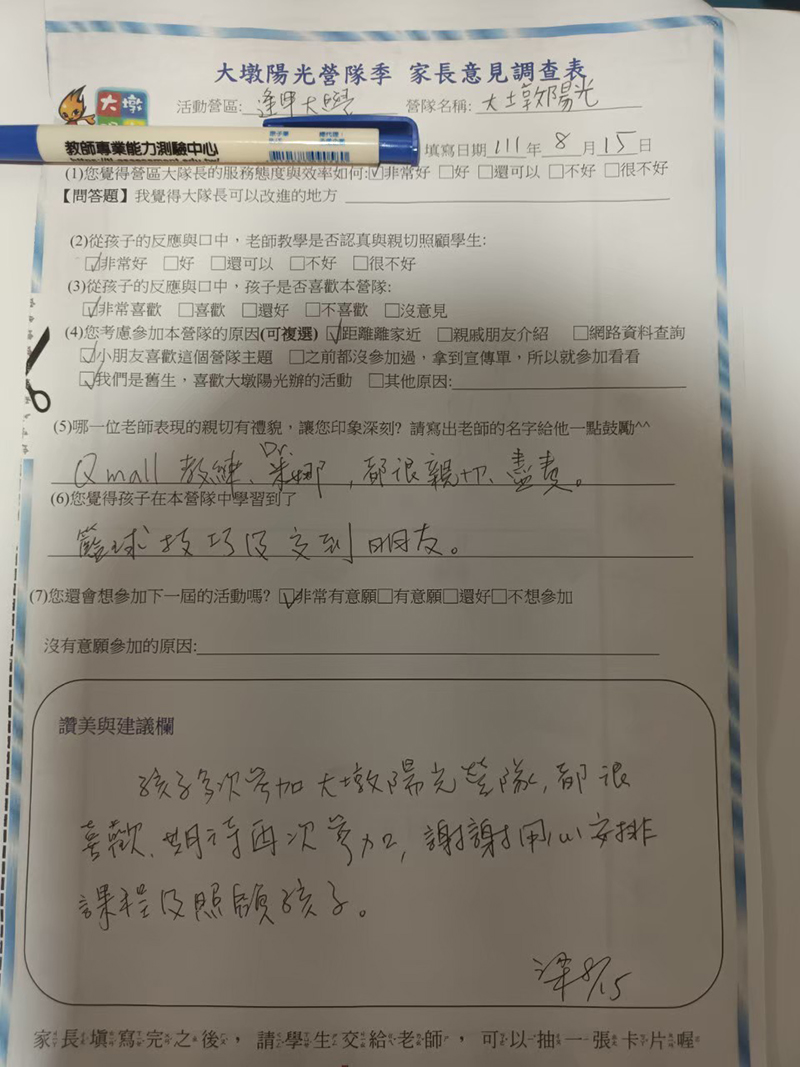 大墩陽光營隊季 家長意見調查表
大墩
活動營區:逢甲大學 營隊名稱:大墩陽光
教師專業能力測驗中心
填寫日期111年8月15日
(1)您覺得營區大隊長的服務態度與效率如何:☑非常好 □好 □還可以 □不好 □很不好
【問答題】我覺得大隊長可以改進的地方
(2)從孩子的反應與口中，老師教學是否認真與親切照顧學生:
☑非常好 □好 □還可以 □不好 □很不好
(3)從孩子的反應與口中，孩子是否喜歡本營隊:
☑非常喜歡 □喜歡 □還好 □不喜歡 □沒意見
(4)您考慮參加本營隊的原因(可複選) ☑距離離家近 □親戚朋友介紹 □網路資料查詢
☑小朋友喜歡這個營隊主題 □之前都沒參加過，拿到宣傳單，所以就參加看看
☑我們是舊生，喜歡大墩陽光辦的活動 □其他原因:
(5)哪一位老師表現的親切有禮貌，讓您印象深刻? 請寫出老師的名字給他一點鼓勵^^
Qmall 教練、Dr.葉娜，都很親切、盡責。
(6)您覺得孩子在本營隊中學習到了
籃球技巧及交到朋友。
(7)您還會想參加下一屆的活動嗎? ☑非常有意願□有意願□還好□不想參加
沒有意願參加的原因:
讚美與建議欄
孩子多次參加大墩陽光營隊,都很
喜歡、期待再次參加,謝謝用心安排
課程及照顧孩子。
8/15
家長填寫完之後，請學生交給老師，可以抽一張卡片喔